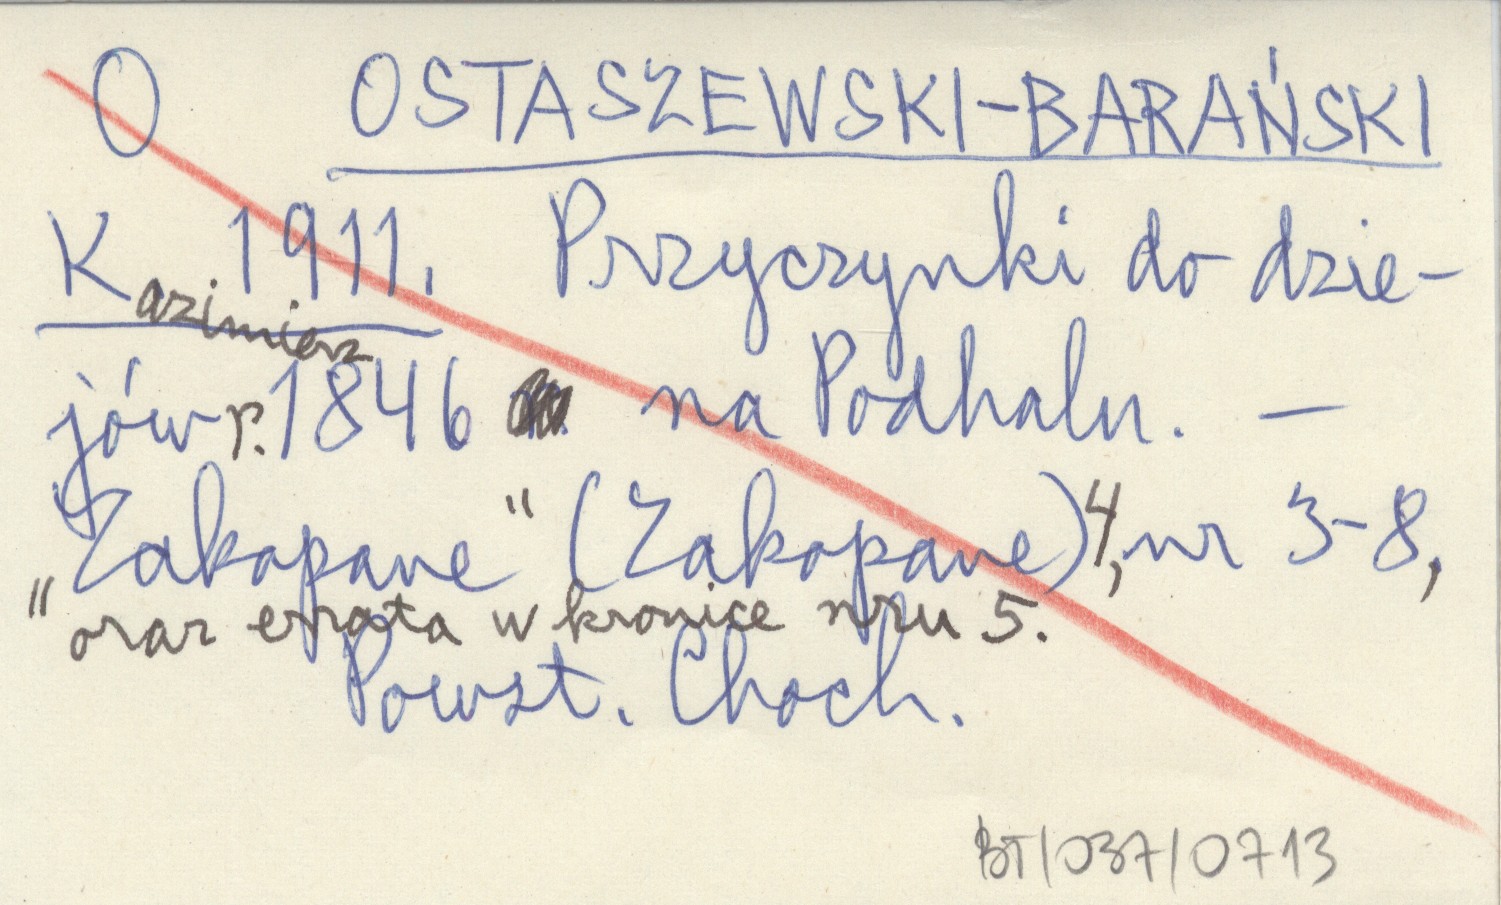 O OSTASZEWSKI-BARAŃSKI
Kazimierz 1911. Przyczynki do dzie-
jów r. 1846 na Podhalu. —
"Zakopane" (Zakopane) 4, nr 3-8,
oraz errata w kronice nru 5.
Powst. Choch.
BT/037/0713